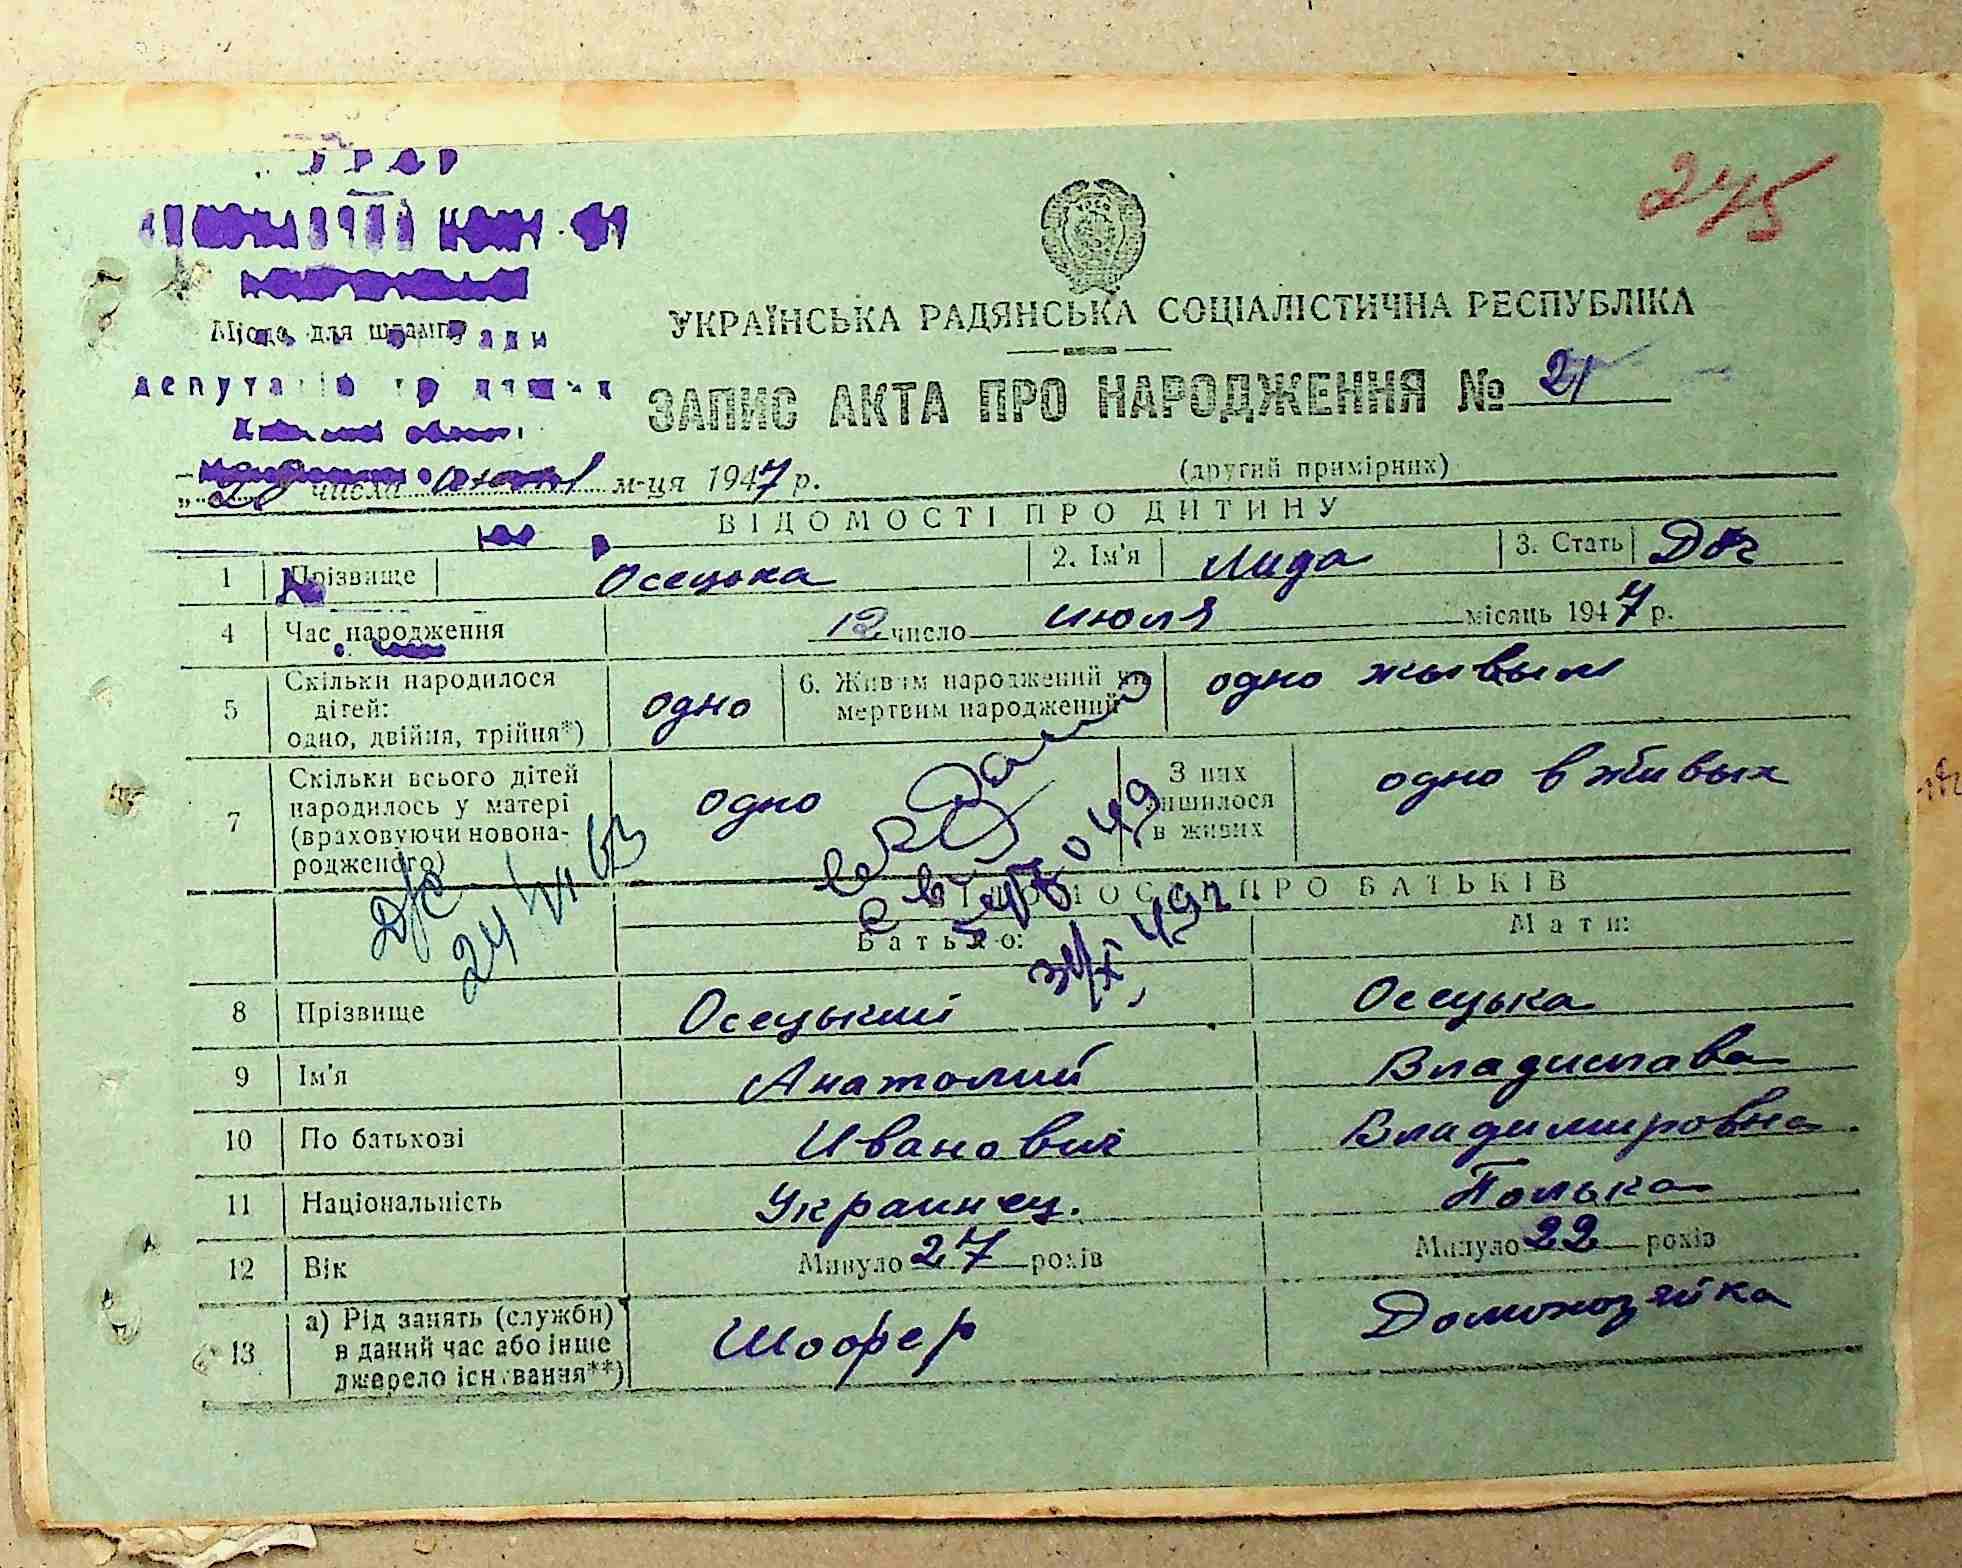 275
УРСР
Місце для штампу
депутатів трудящих
УКРАЇНСЬКА РАДЯНСЬКА СОЦІАЛІСТИЧНА РЕСПУБЛІКА
ЗАПИС АКТА ПРО НАРОДЖЕННЯ № 21
(другий примірник)
числа м-ця 1947 р.
ВІДОМОСТІ ПРО ДИТИНУ
1 Прізвище Осецька 2. Ім'я Лида 3. Стать Доч
4 Час народження 12 число июля місяць 1947 р.
5 Скільки народилося дітей: одно, двійня, трійня*) одно 6. Живим народжений чи мертвим народжений одно живым
7 Скільки всього дітей народилось у матері (враховуючи новонародженого) одно З них лишилося в живих одно в живых
24/VI 63
ВІДОМОСТІ ПРО БАТЬКІВ
Батько: Мати:
8 Прізвище Осецький Осецька
9 Ім'я Анатолий Владислава
10 По батькові Иванович Владимировна.
11 Національність Украинец. Полька
12 Вік Минуло 27 років Минуло 22 років
13 а) Рід занять (служби) в даний час або інше джерело існування**) Шофер Домохозяйка